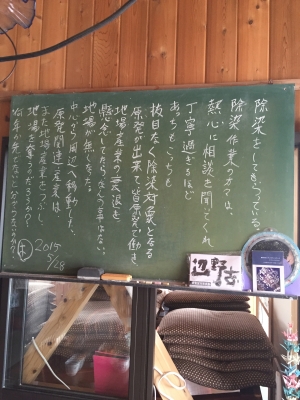 除染をしてもらっている。
除染作業の方々は、
熱心に相談を聞てくれ
丁寧過ぎるほど
あっちもこっちも
抜目なく除染対象となる
原発が出来て皆原発で働き
地場産業の衰退を
懸念してたら案の事はない。
地場が無くなった。
中心から周辺へ移動した、
原発関連産業は
また地場産業をつぶし、
地場を奪うのだろうか?
2015
5/28
辺野古